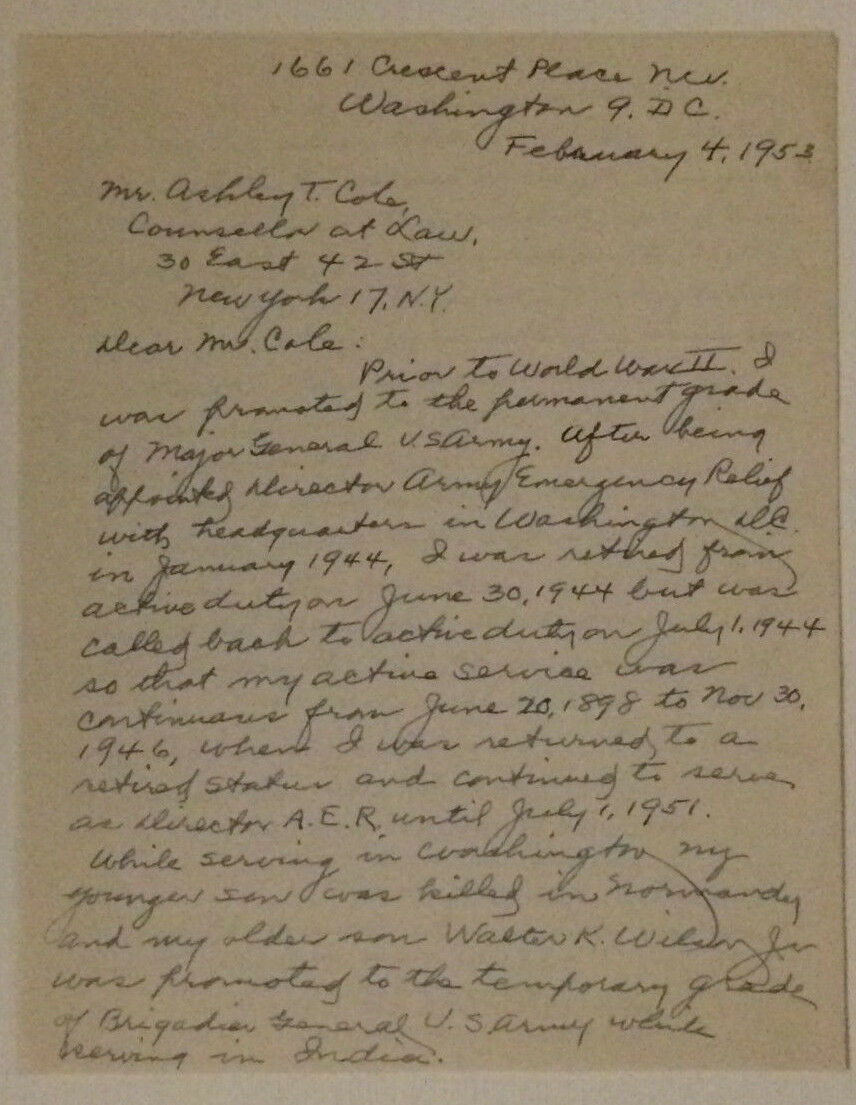 1661 Crescent Place NW.
Washington 9. D.C.
February 4, 1953
Mr. Ashley T. Cole,
Counsellor at Law,
30 East 42 St
New York 17, N.Y.
Dear Mr. Cole:
Prior to World War II. I
was promoted to the permanent grade
of Major General U.S Army. After being
appointed Director Army Emergency Relief
with headquarters in Washington D.C.
in January 1944, I was retired from
active duty on June 30, 1944 but was
called back to active duty on July 1, 1944
so that my active service was
continuous from June 20, 1898 to Nov 30,
1946, when I was returned to a
retired status and continued to serve
as Director A.E.R. until July 1, 1951.
While serving in Washington my
younger son was killed in Normandy
and my older son Walter K. Wilson Jr
was promoted to the temporary grade
of Brigadier General U.S Army while
serving in India.